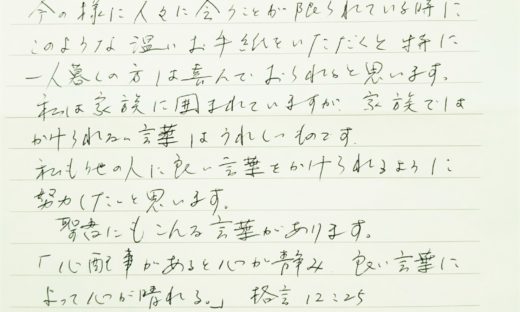 今の様に人々に会うことが限られている時に
このような温いお手紙をいただくと特に
一人暮しの方は喜んでおられると思います。
私は家族に囲まれていますが、家族では
かけられない言葉はうれしいものです。
私も他の人に良い言葉をかけられるように
努力したいと思います。
聖書にもこんな言葉があります。
「心配事があると心が静み 良い言葉に
よって心が晴れる。」 格言 12:25